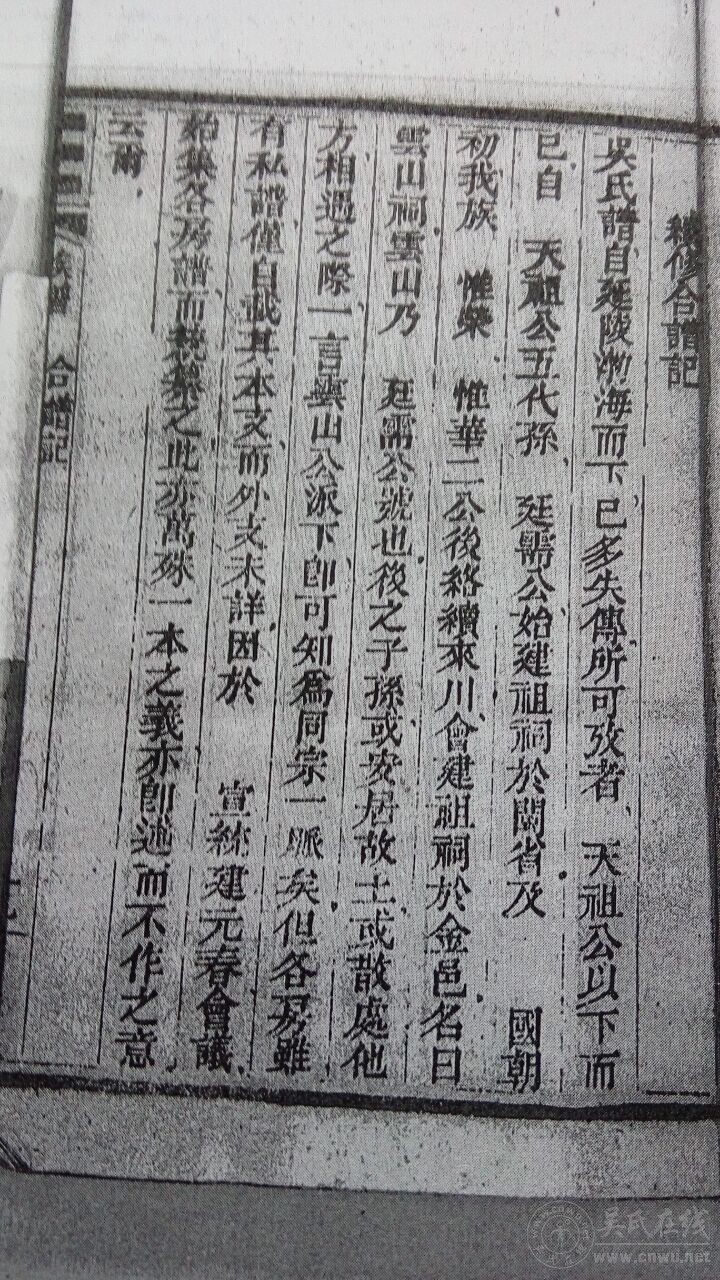 續修合譜記
吳氏譜自延陵渤海而下已多失傳所可攷者 天祖公以下而
已自 天祖公五代孫 廷需公始建祖祠於閩省及 國朝
初我族 惟榮 惟華二公後絡續來川會建祖祠於金邑名曰
雲山祠雲山乃 廷需公號也後之子孫或安居故土或散處他
方相遇之際一言雲山公派下卽可知爲同宗一脈矣但各房雖
有私譜僅自載其本支而外支未詳因於 宣統建元春會議
始集各房譜而 之此亦萬殊一本之義亦卽述而不作之意
云爾
合譜記
吴氏在线
www.cnwu.net